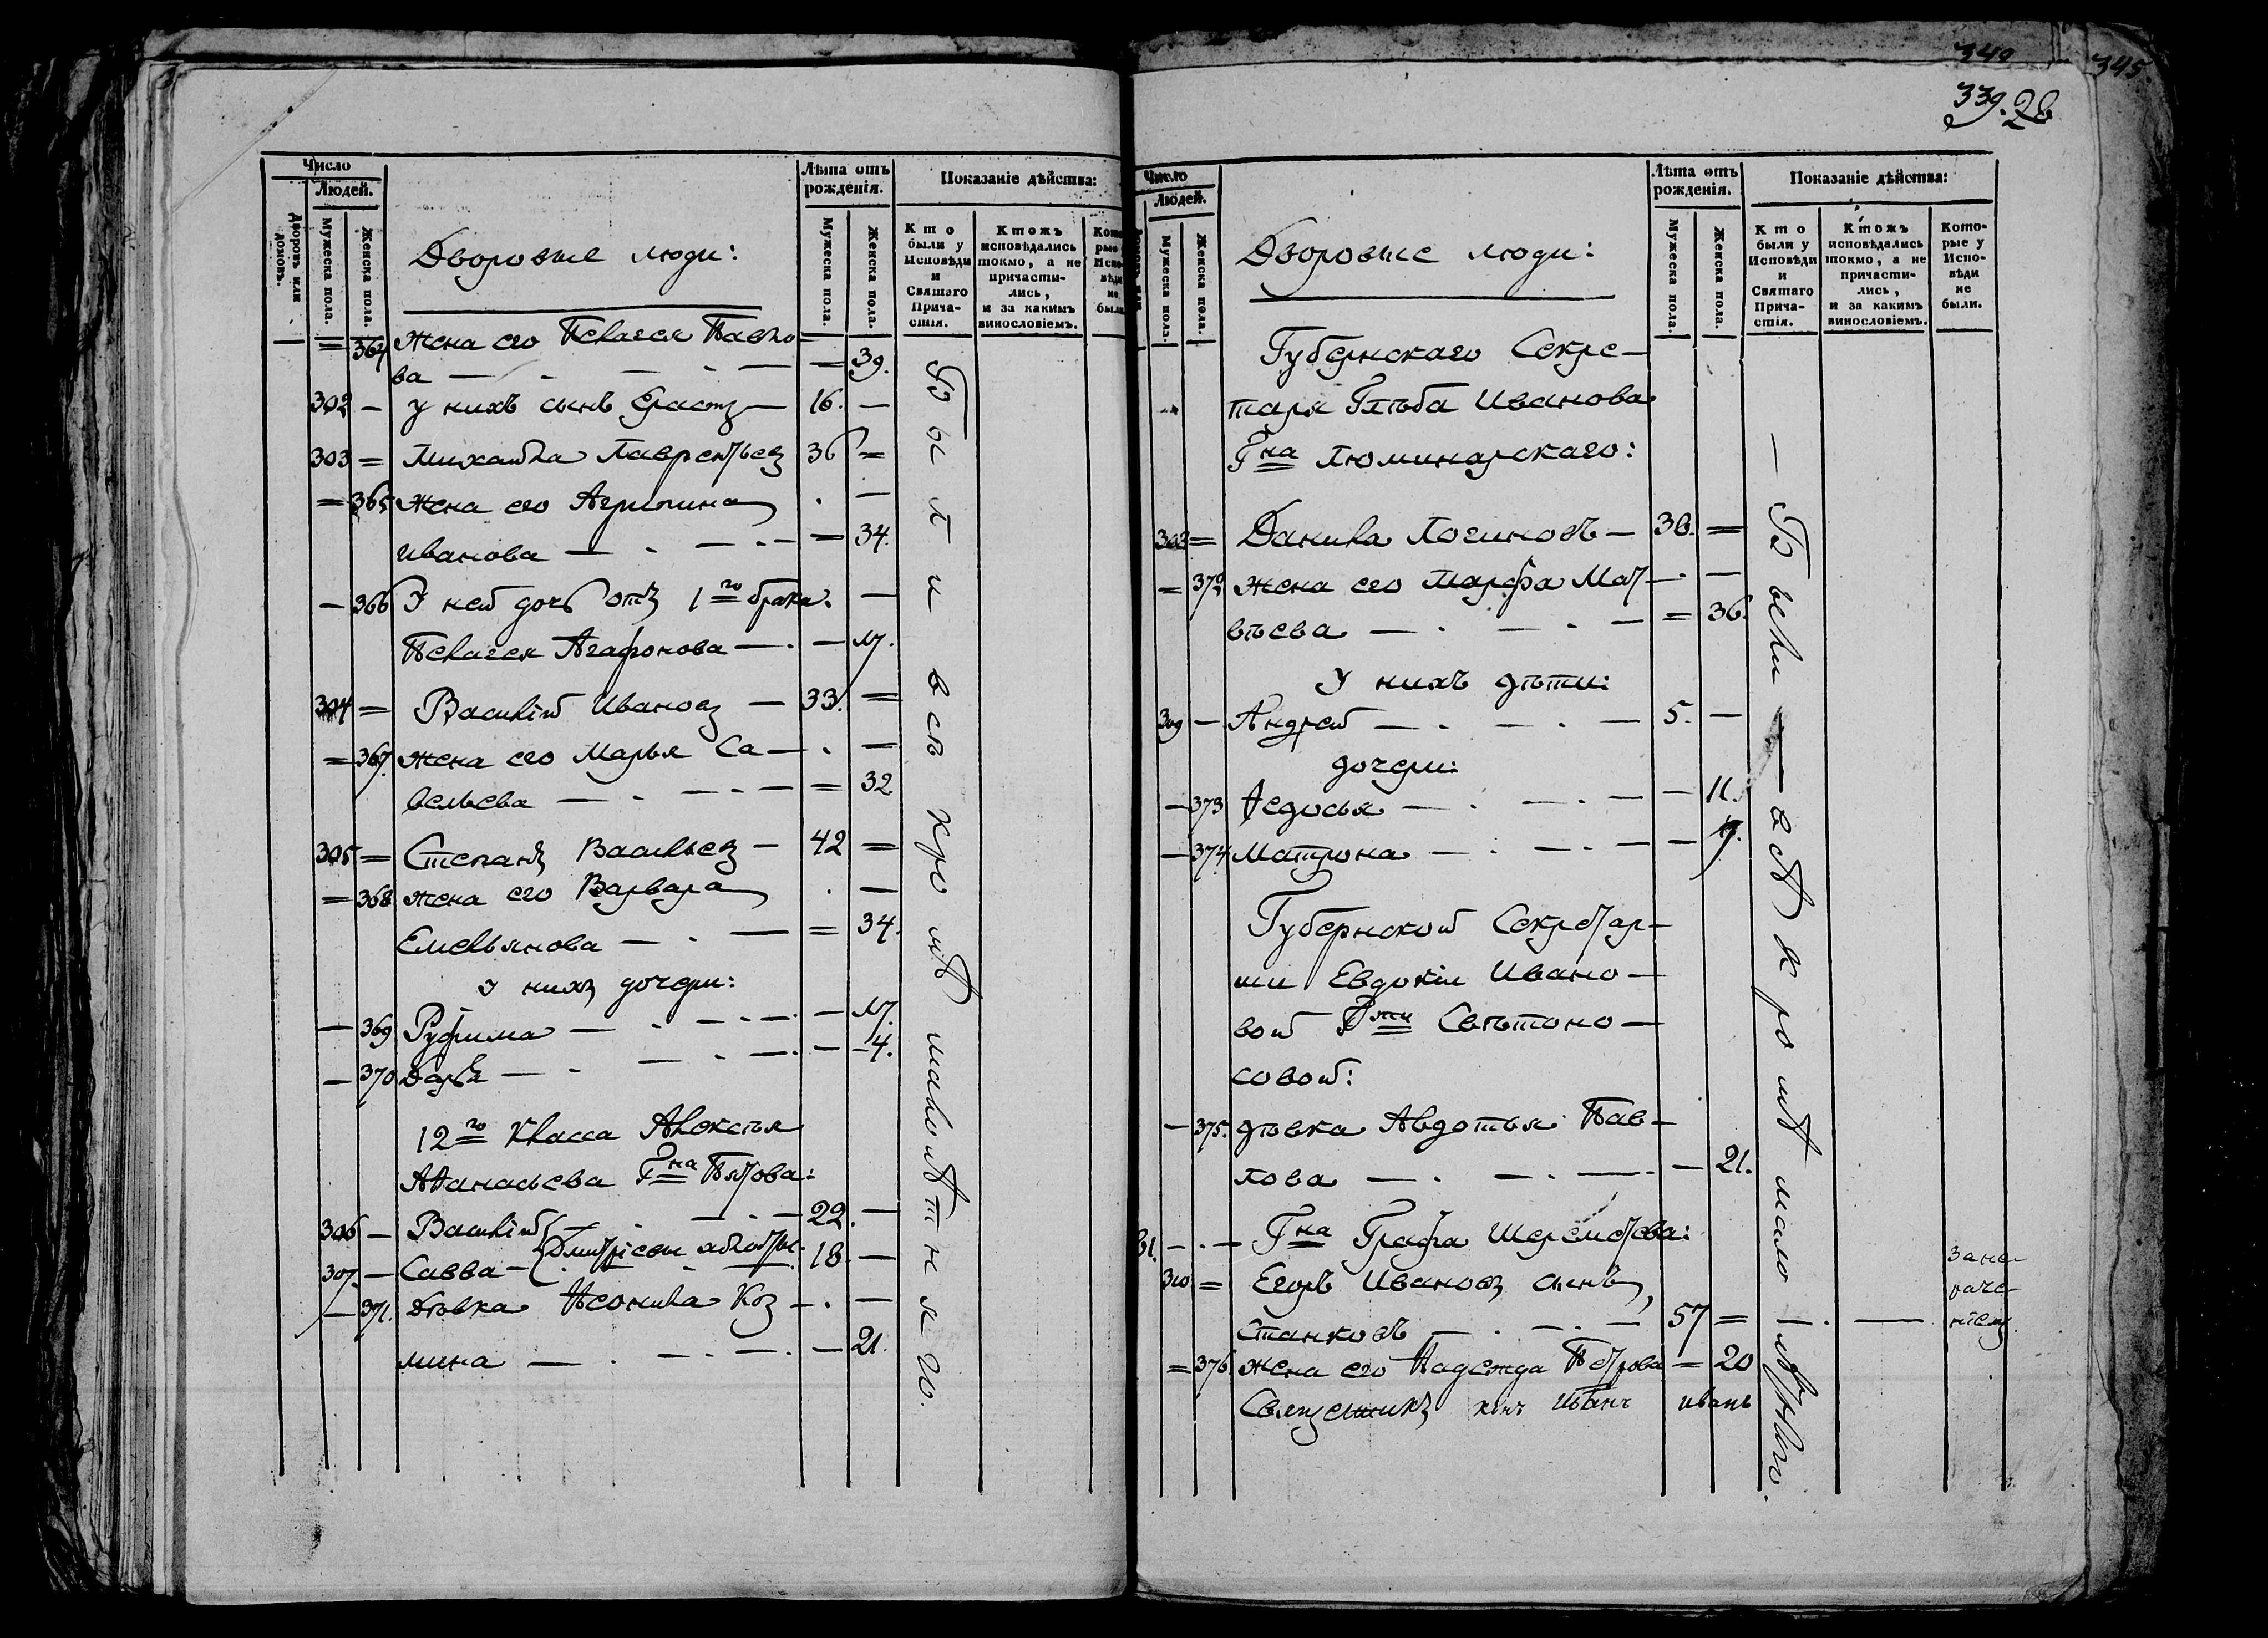 Число
Людей.
Дворовъ или домовъ.
Мужеска пола.
Женска пола.
Дворовые люди:
Лѣта отъ рожденія.
Мужеска пола.
Женска пола.
Показаніе дѣйства:
Кто были у Исповѣди и Святаго Причастія.
Ктожъ исповѣдались токмо, а не причастились, и за какимъ винословіемъ.
= 364 жена его Пелагея Павло=
ва — — 39.
302 — у нихъ сынъ Ерастъ — 16. —
303 = Михайла Лаврентьевъ 36 =
= 365 Жена его Агрипина . —
Иванова — = 34.
— 366 У ней дочь отъ 1го брака. —
Пелагея Агафонова — — 17.
304 = Василій Ивановъ — 33. =
= 367. жена его Марья Са— . —
вельева — = 32
305 = Степанъ Васильевъ — 42 =
= 368 жена его Варвара . —
Емельянова — = 34.
у нихъ дочери:
— 369 Руфима — — 17.
— 370 Дарья — — 4.
12го класса Алексѣя
Афанасьева Гна Пятова:
306 — Василій — 22. —
307. — Савва — Дмитріевы 18. —
— 371. дѣвка Неонила Коз— . —
мина — — 21.
Были всѣ кромѣ малолѣтняго.
340
345.
339. 28
Число
Людей.
Мужеска пола.
Женска пола.
Дворовые люди:
Лѣта отъ рожденія.
Мужеска пола.
Женска пола.
Показаніе дѣйства:
Кто были у Исповѣди и Святаго Причастія.
Ктожъ исповѣдались токмо, а не причастились, и за какимъ винословіемъ.
Которые у Исповѣди не были.
Губернскаго Секре—
таря Глѣба Иванова
Гна Люминарскаго:
308 = Данила Логиновъ — 38. =
= 372 жена его Марфа Мат— . —
вѣева — = 36.
У нихъ дѣти:
309 — Андрей — 5. —
дочери:
— 373 Федосья — — 11.
— 374 Матрона — — 7.
Губернской Секретар—
ши Евдокіи Ивано—
вой Гжи Свѣтоно—
совой:
— 375. дѣвка Авдотья Пав—
лова — — 21.
81. — Гна Графа Шереметева:
310. = Егоръ Ивановъ сынъ,
Станковъ — 57 =
= 376. жена его Надежда Петрова = 20
Священникъ Иванъ Ивань
за не-
раче-
ніемъ